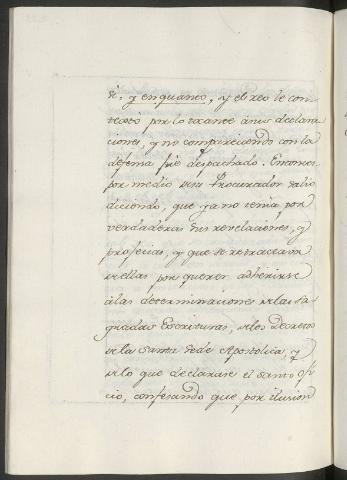 si, y en quanto, y el reo le con-
textó por lo tocante á sus declara
ciones, y no compareciendo con la
defensa fué despachado. Entonces
por medio de su Procurador salió
diciendo, que ya no tenia por
verdaderas sus revelaciones, y
profecias, y que se retractava
de ellas por querer adherirse
á las determinaciones de las Sa
gradas Escrituras, de los Decretos
de la Santa Sede Apostolica, y
de lo que declarase el Santo Ofi
cio, confesando que por ilusion